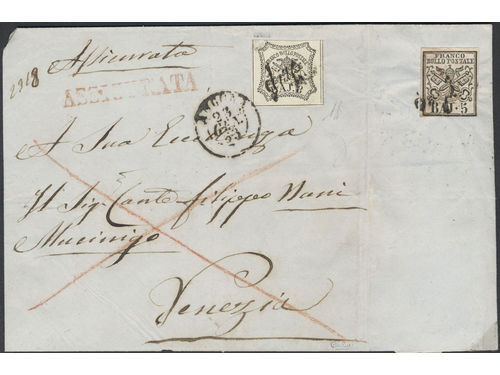 Assicurata
2318
ASSICURATA
FRANCO
BOLLO POSTALE
BAJ 5
ANCONA
23
A Sua Eccellenza
Il Sig. Conte Filippo Nani
Mucinigo
Venezia